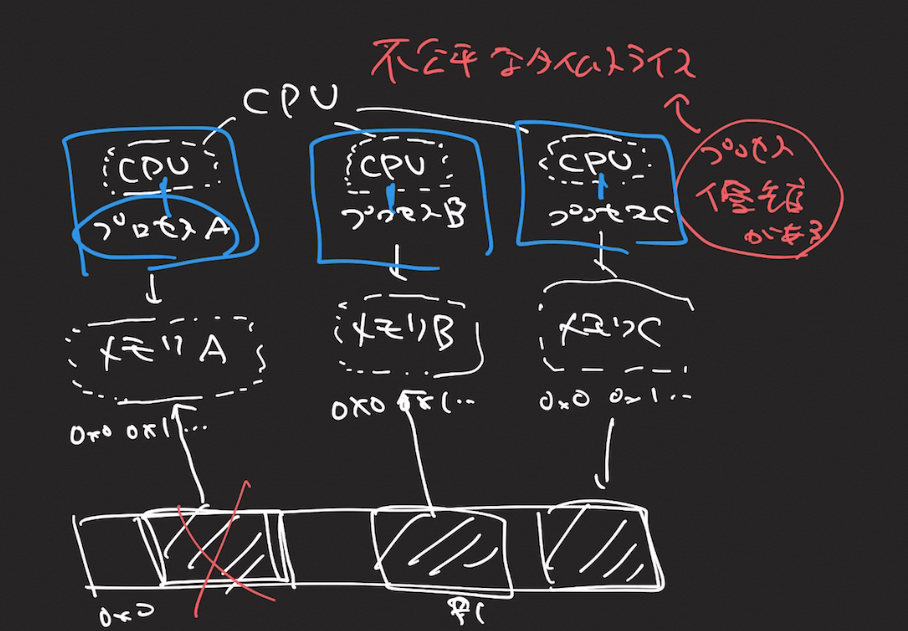 不公平なタイムスライス
CPU
CPU
CPU
CPU
プロセス
プロセスA
プロセスB
プロセスC
がある
メモリA
メモリB
メモリC
0x0 0x1...
0x0 0x1...
0x0 0x1...
0x0